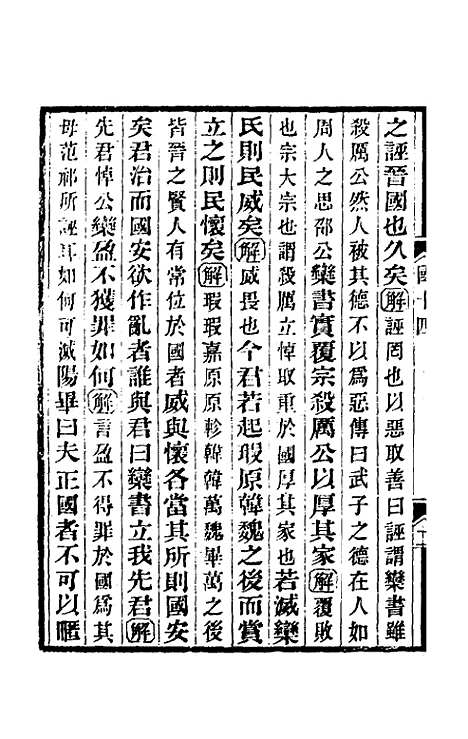 之誣晉國也久矣解誣罔也以惡取善曰誣謂欒書雖
殺厲公然人被其德不以爲惡傳曰武子之德在人如
周人之思邵公欒書實覆宗殺厲公以厚其家解覆敗
也宗大宗也謂殺厲立悼取重於國厚其家也若滅欒
氏則民威矣解威畏也今君若起瑕原韓魏之後而賞
立之則民懷矣解瑕瑕嘉原原軫韓韓萬魏畢萬之後
皆晉之賢人有常位於國者威與懷各當其所則國安
矣君治而國安欲作亂者誰與君曰欒書立我先君解
先君悼公欒盈不獲罪如何解言盈不得罪於國爲其
母范祁所誣耳如何可滅陽畢曰夫正國者不可以暱
國十四